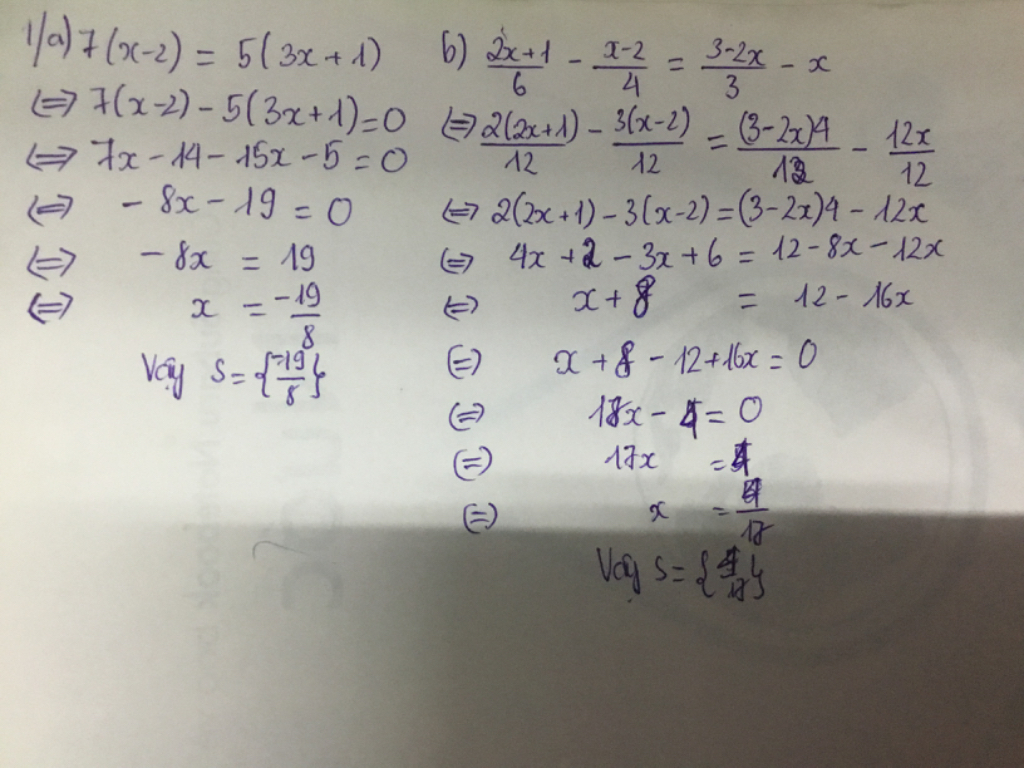 1/a) 7(x-2) = 5(3x+1)
⇔ 7(x-2) - 5(3x+1) = 0
⇔ 7x - 14 - 15x - 5 = 0
⇔ - 8x - 19 = 0
⇔ - 8x = 19
⇔ x = -19/8
Vậy S = {-19/8}
b) (2x+1)/6 - (x-2)/4 = (3-2x)/3 - x
⇔ 2(2x+1)/12 - 3(x-2)/12 = (3-2x)4/12 - 12x/12
⇔ 2(2x+1) - 3(x-2) = (3-2x)4 - 12x
⇔ 4x + 2 - 3x + 6 = 12 - 8x - 12x
⇔ x + 8 = 12 - 16x
⇔ x + 8 - 12 + 16x = 0
⇔ 17x - 4 = 0
⇔ 17x = 4
⇔ x = 4/17
Vậy S = {4/17}